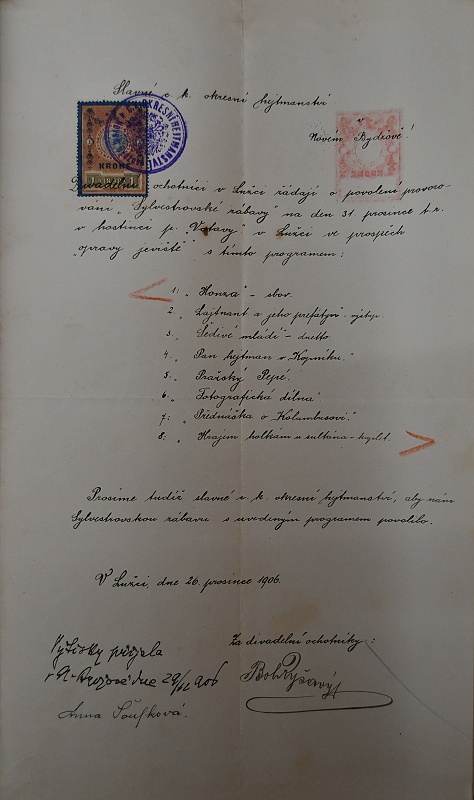 Slavné c. k. okresní hejtmanství
v
Novém Bydžově!
KRONE
1 1
Divadelní ochotníci v Lužci žádají o povolení provozo-
vání „Sylvestrovské zábavy" na den 31. prosince t. r.
v hostinci p. „Votavy" v Lužci ve prospěch
„opravy jeviště" s tímto programem:
1: „Honza" - sbor.
2. „Lajtnant a jeho
3. „Šedivé mládí" - duetto
4. „Pan hejtman v Kopníku."
5. „Pražský Pepé.
6. „Fotografická dílna"
7: „Přednáška o Kolumbusovi."
8: „Hrajem holkám u sultána - kuplet.
Prosíme tudíž slavné c. k. okresní hejtmanství, aby nám
Sylvestrovskou zábavu s uvedeným programem povolilo.
V Lužci, dne 26. prosince 1906.
Za divadelní ochotníky:
Výtisky přijala
dne 29/12 906
Anna Šoufková.